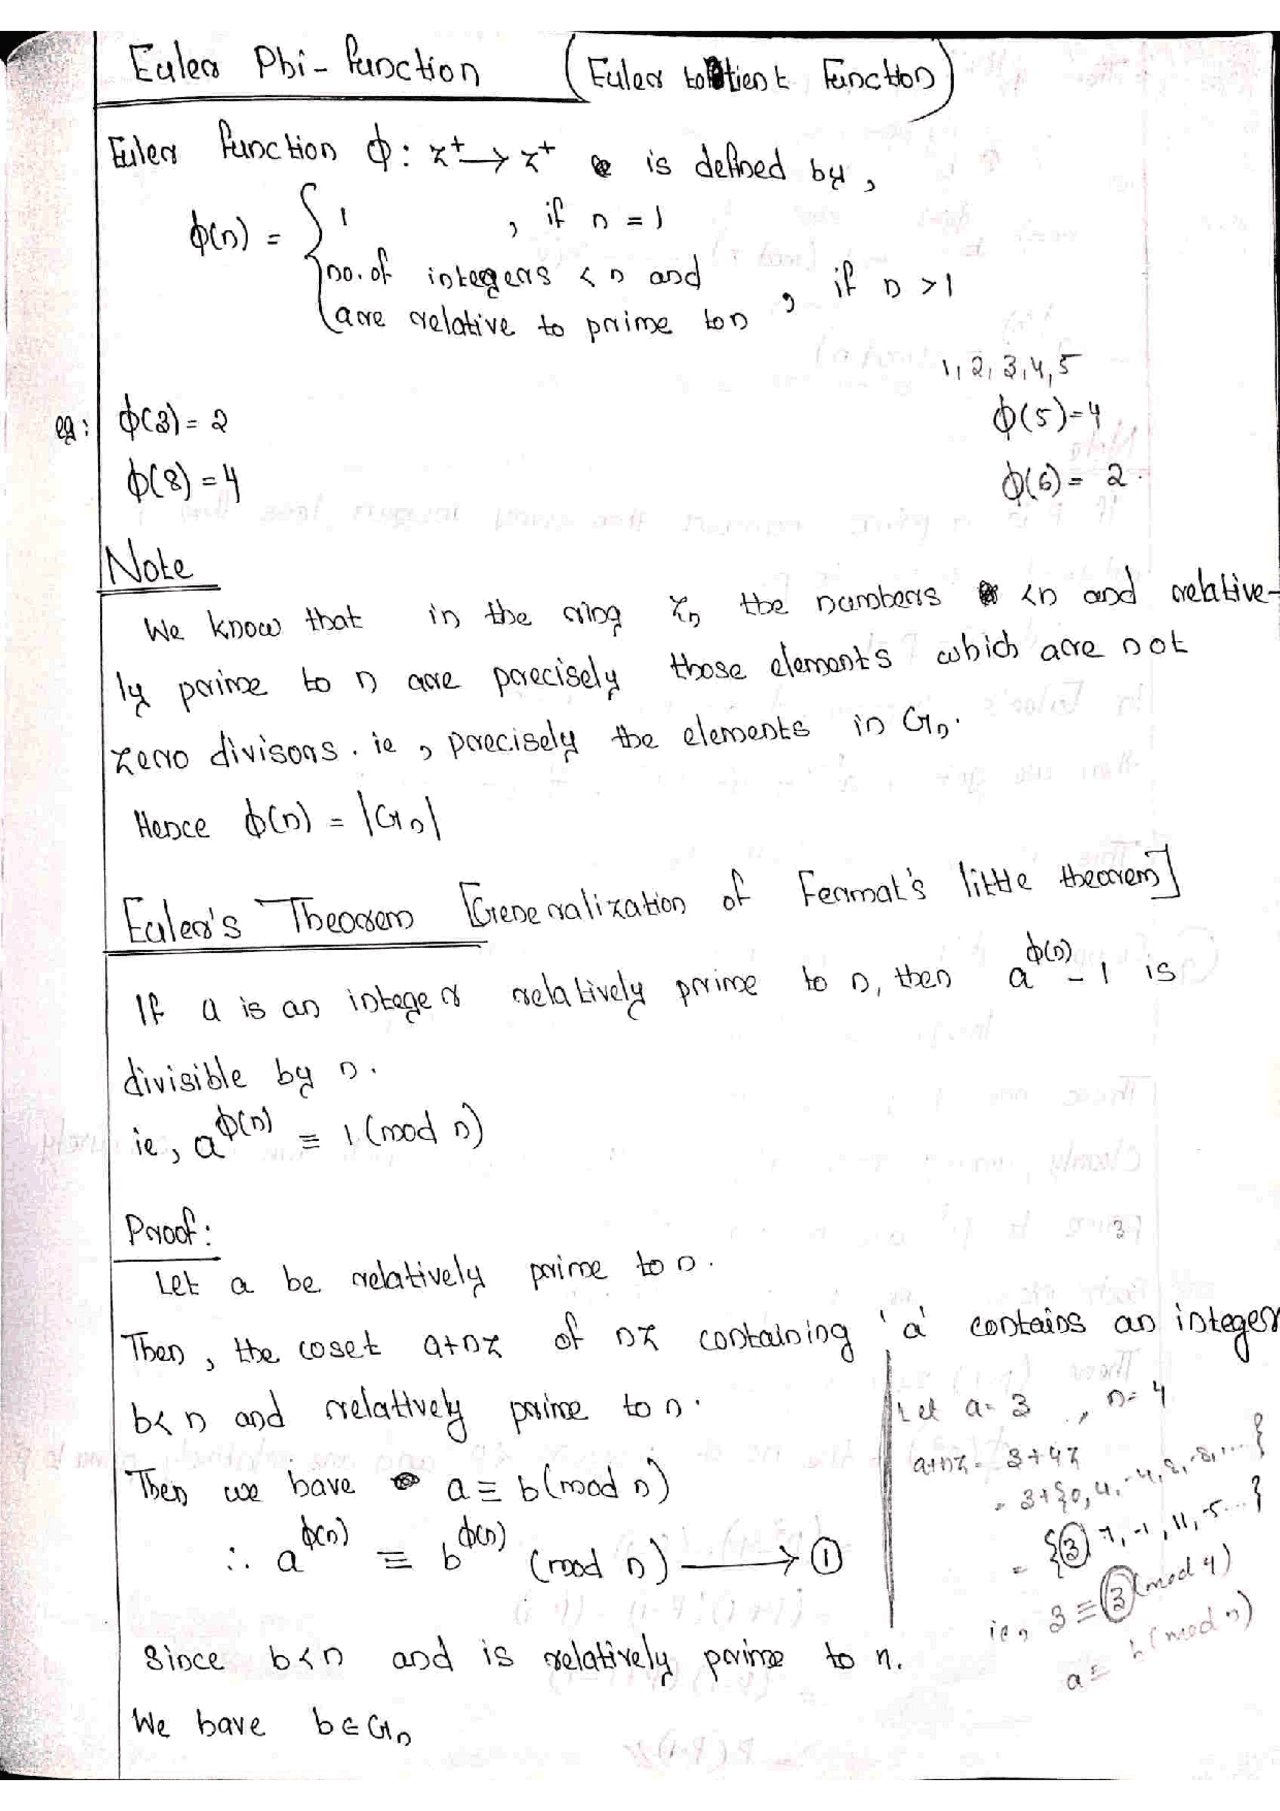 Euler Phi-function (Euler totient Function)
Euler function ϕ: Z⁺→Z⁺ is defined by,
ϕ(n) = { 1 , if n = 1
no. of integers < n and
are relative to prime to n , if n > 1
1, 2, 3, 4, 5
eg: ϕ(3) = 2 ϕ(5) = 4
ϕ(8) = 4 ϕ(6) = 2.
Note
We know that in the ring Zₙ the numbers < n and relative-
ly prime to n are precisely those elements which are not
zero divisors. ie, precisely the elements in Gₙ.
Hence ϕ(n) = |Gₙ|
Euler's Theorem [Generalization of Fermat's little theorem]
If a is an integer relatively prime to n, then a^ϕ(n) - 1 is
divisible by n.
ie, a^ϕ(n) ≡ 1 (mod n)
Proof:
Let a be relatively prime to n.
Then, the coset a+nZ of nZ containing 'a' contains an integer
b < n and relatively prime to n.
Then we have a ≡ b (mod n)
∴ a^ϕ(n) ≡ b^ϕ(n) (mod n) ⟶ ①
Since b < n and is relatively prime to n.
We have b ∈ Gₙ
Let a = 3 , n = 4
a+nZ = 3+4Z
= 3+{0, 4, -4, 8, -8, ...}
= {3, 7, -1, 11, -5 ...}
ie, 3 ≡ 3 (mod 4)
a ≡ b (mod n)